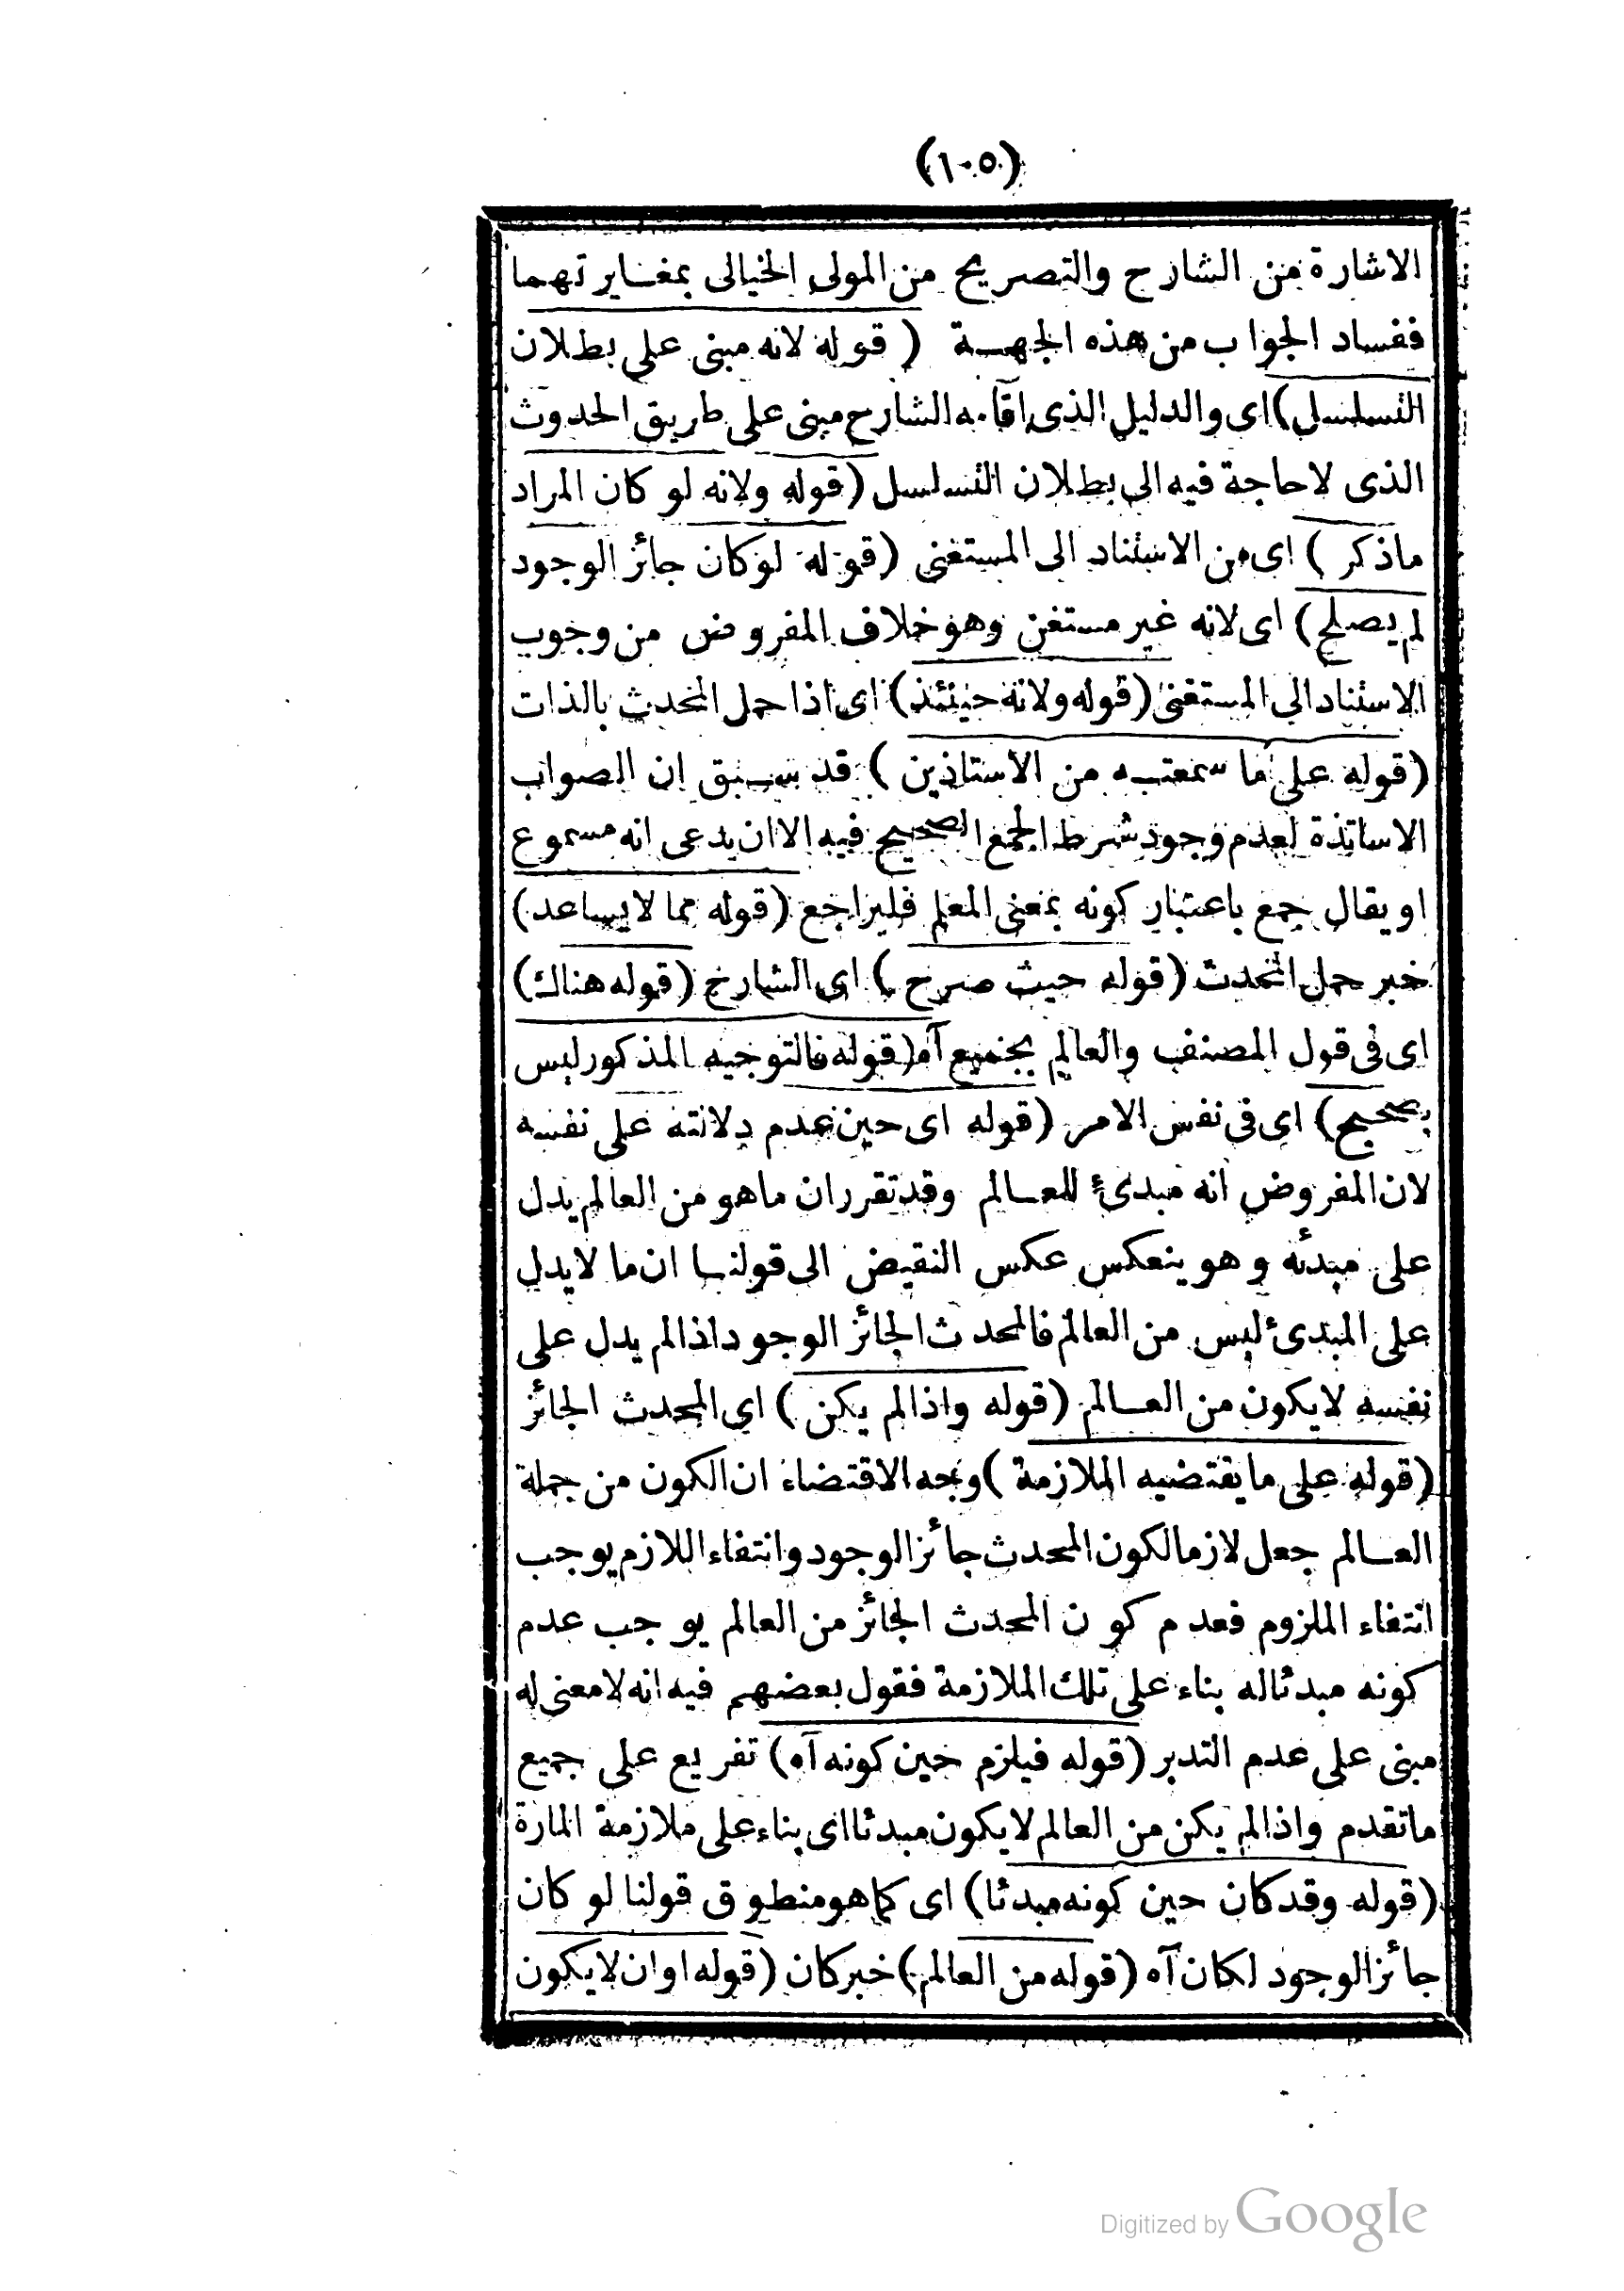 (١٠٥)
الاشارة من الشارح والتصريح من المولى الخيالى بمغايرتهما
ففساد الجواب من هذه الجهة ( قوله لانه مبنى على بطلان
التسلسل) اى والدليل الذى اقامه الشارح مبنى على طريق الحدوث
الذى لا حاجة فيه الى بطلان التسلسل (قوله ولانه لو كان المراد
ماذكر ) اى من الاستناد الى المستغنى (قوله لو كان جائز الوجود
لم يصلح) اى لانه غير مستغن وهو خلاف المفروض من وجوب
الاستناد الى المستغنى (قوله ولانه حينئذ) اى اذا حمل المحدث بالذات
(قوله على ما سمعتبه من الاستاذين ) قد سبق ان الصواب
الاساتذة لعدم وجود شرط الجمع الصحيح فيه الا ان يدعى انه مسموع
او يقال جمع باعتبار كونه بمعنى المعلم فليراجع (قوله مما لا يساعد)
خبر حمل المحدث (قوله حيث صرح ) اى الشارح (قوله هناك)
اى فى قول المصنف والعالم بجميع آه (قوله فالتوجيه المذكور ليس
بصحيح) اى فى نفس الامر (قوله اى حين عدم دلالته على نفسه
لان المفروض انه مبدئ للعالم وقد تقرر ان ما هو من العالم يدل
على مبدئه وهو ينعكس عكس النقيض الى قولنا ان ما لا يدل
على المبتدئ ليس من العالم فالمحدث الجائز الوجود اذا لم يدل على
نفسه لا يكون من العالم (قوله واذا لم يكن ) اى المحدث الجائز
(قوله على ما يقتضيه الملازمة ) وجه الاقتضاء ان الكون من جملة
العالم جعل لازما لكون المحدث جائز الوجود وانتفاء اللازم يوجب
انتفاء الملزوم فعدم كون المحدث الجائز من العالم يوجب عدم
كونه مبدئا له بناء على تلك الملازمة فقول بعضهم فيه انه لا معنى له
مبنى على عدم التدبر (قوله فيلزم حين كونه آه) تفريع على جميع
ما تقدم واذا لم يكن من العالم لا يكون مبدئا اى بناء على ملازمة المارة
(قوله وقد كان حين كونه مبدئا) اى كما هو منطوق قولنا لو كان
جائز الوجود لكان آه (قوله من العالم) خبر كان (قوله او ان لا يكون
Digitized by Google